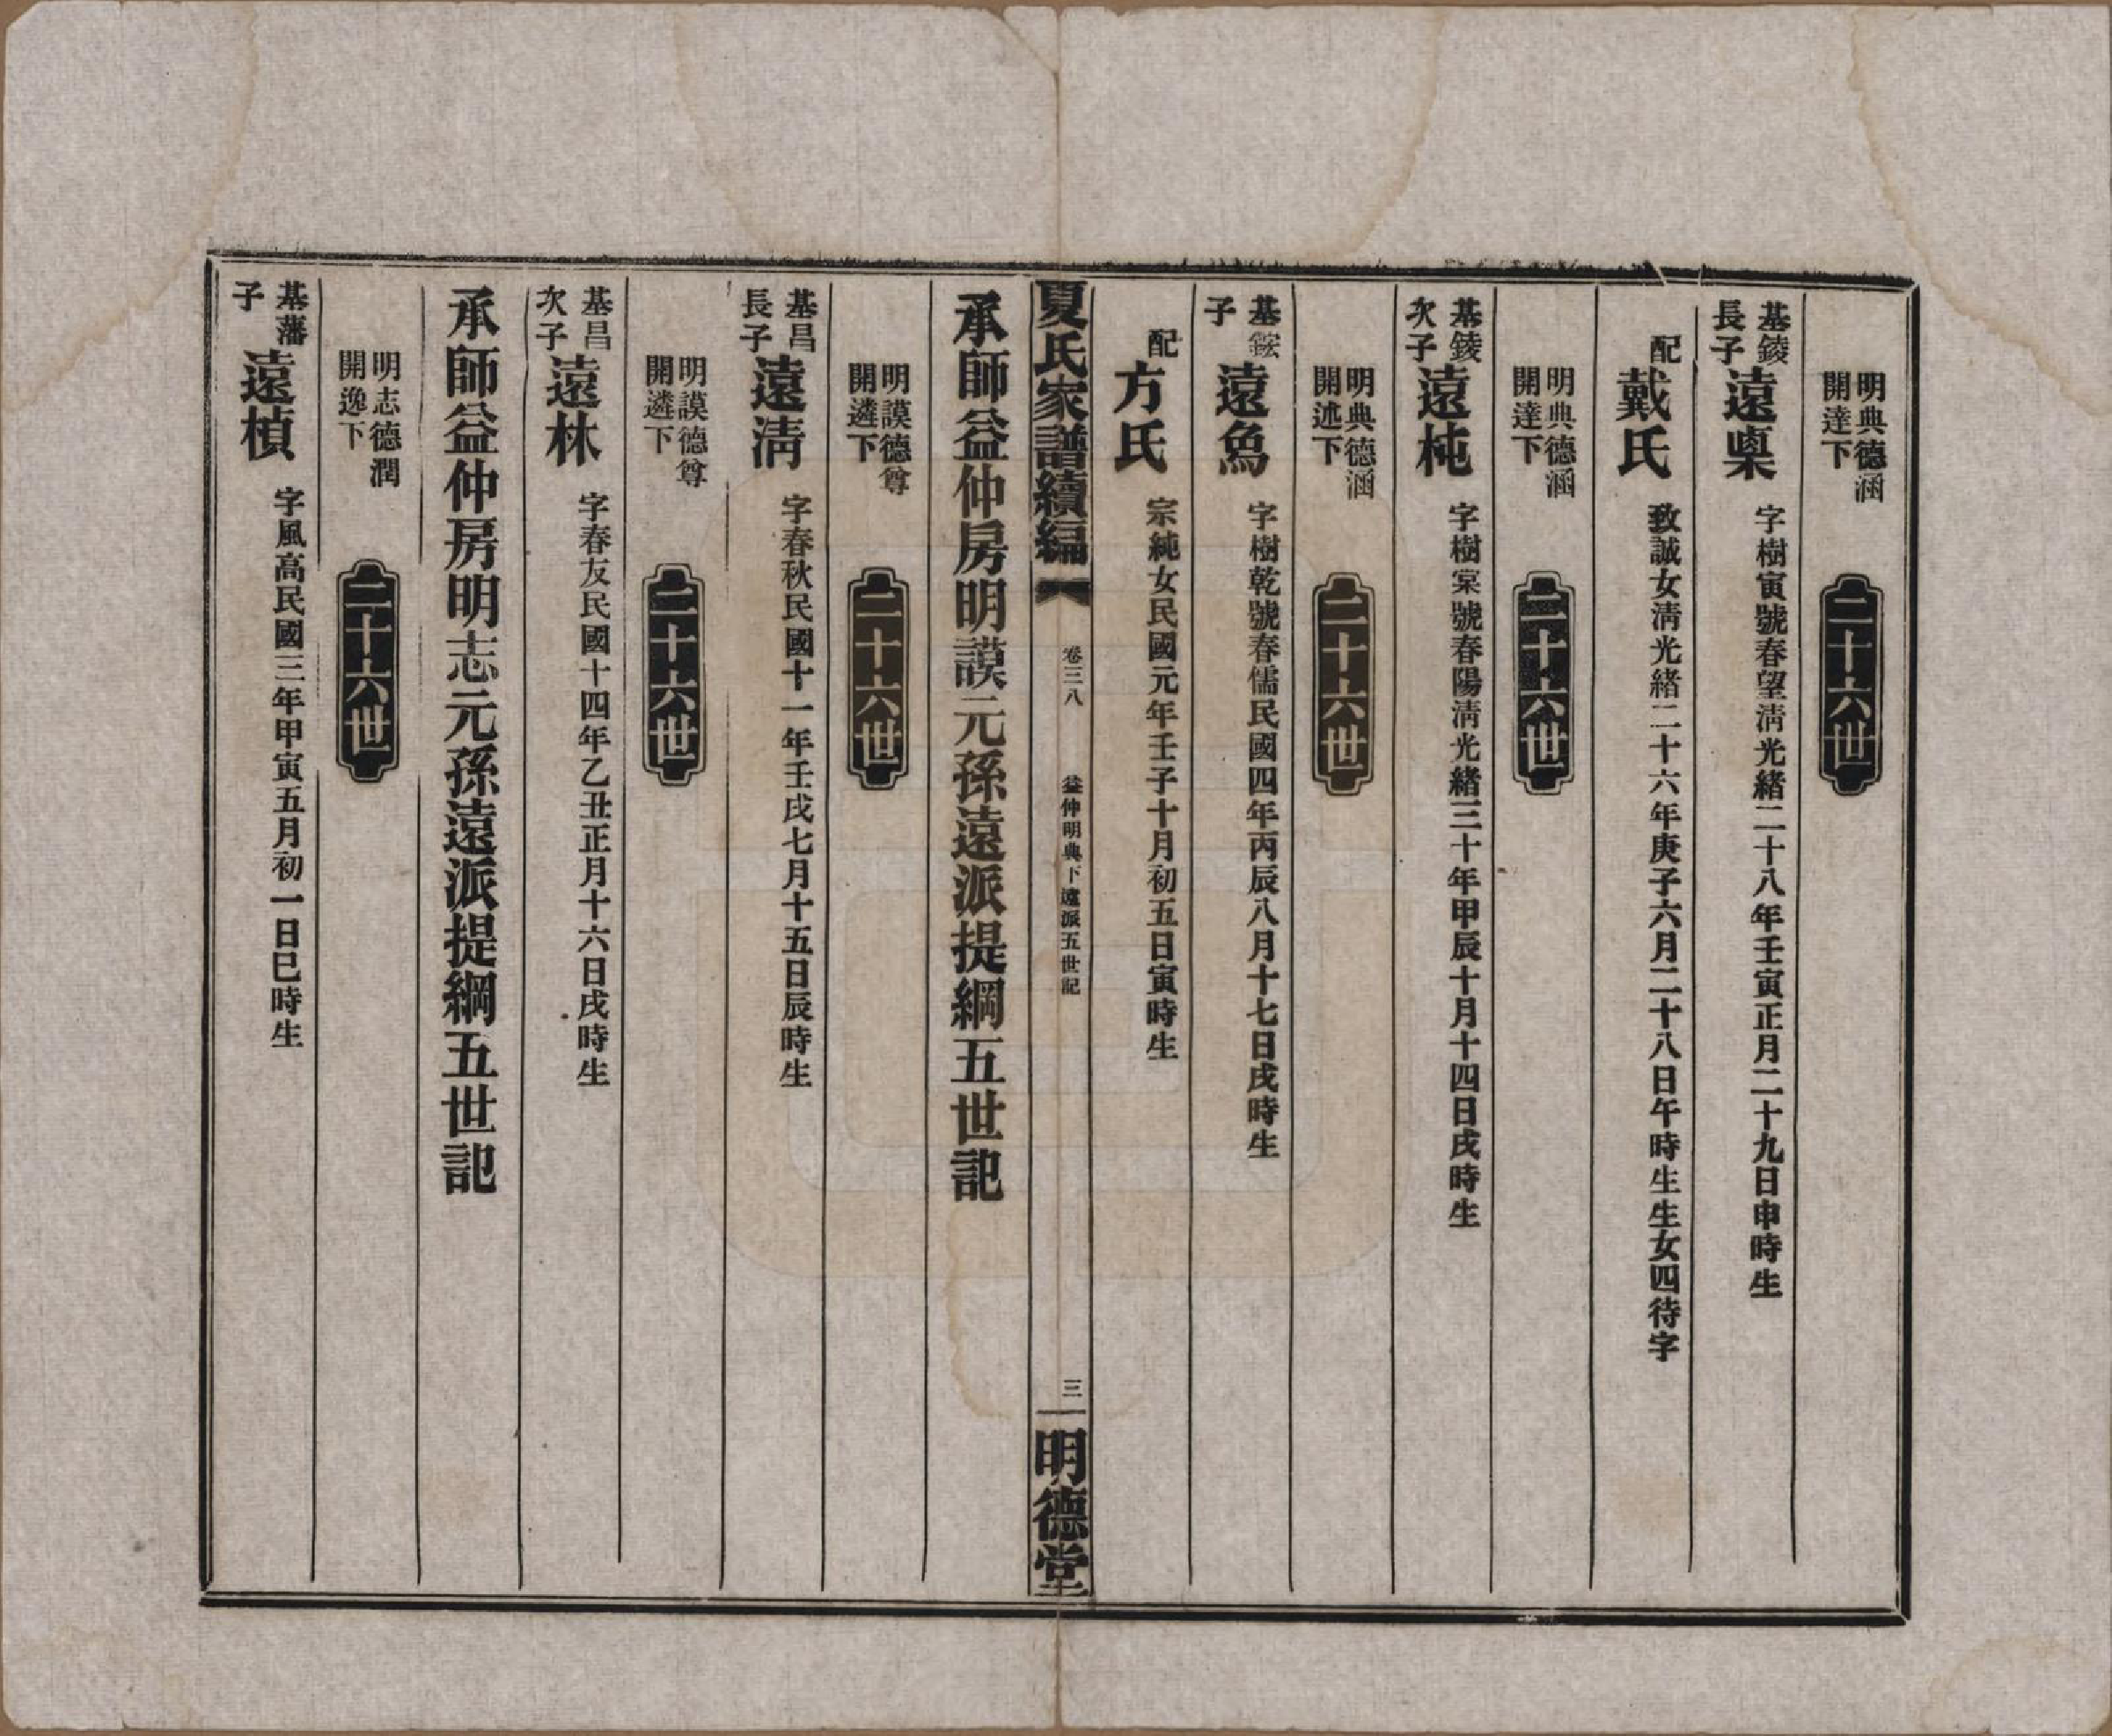 明典德涵
開達下
二十六世
基錂
長子
遠㮚
字樹寅號春望淸光緒二十八年壬寅正月二十九日申時生
配
戴氏
致誠女淸光緒二十六年庚子六月二十八日午時生生女四待字
明典德涵
開達下
二十六世
基錂
次子
遠杶
字樹棠號春陽淸光緒三十年甲辰十月十四日戌時生
明典德涵
開述下
二十六世
基銨
子
遠為
字樹乾號春儒民國四年丙辰八月十七日戌時生
配
方氏
宗純女民國元年壬子十月初五日寅時生
夏氏家譜續編
卷三八
益仲明典下遠派五世記
三
明德堂
承師益仲房明謨元孫遠派提綱五世記
明謨德尊
開遴下
二十六世
基昌
長子
遠淸
字春秋民國十一年壬戌七月十五日辰時生
明謨德尊
開遴下
二十六世
基昌
次子
遠林
字春友民國十四年乙丑正月十六日戌時生
承師益仲房明志元孫遠派提綱五世記
明志德潤
開逸下
二十六世
基藩
子
遠楨
字風高民國三年甲寅五月初一日巳時生